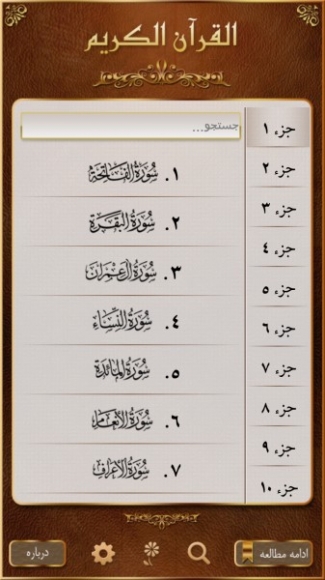 القرآن الكريم
جستجو...
جزء ۱
جزء ۲
جزء ۳
جزء ۴
جزء ۵
جزء ۶
جزء ۷
جزء ۸
جزء ۹
جزء ۱۰
۱. سُورَةُ الفَاتِحَة
۲. سُورَةُ البَقَرَة
۳. سُورَةُ آل عِمْرَان
۴. سُورَةُ النِّسَاء
۵. سُورَةُ المَائدة
۶. سُورَةُ الأنعام
۷. سُورَةُ الأعراف
ادامه مطالعه
درباره